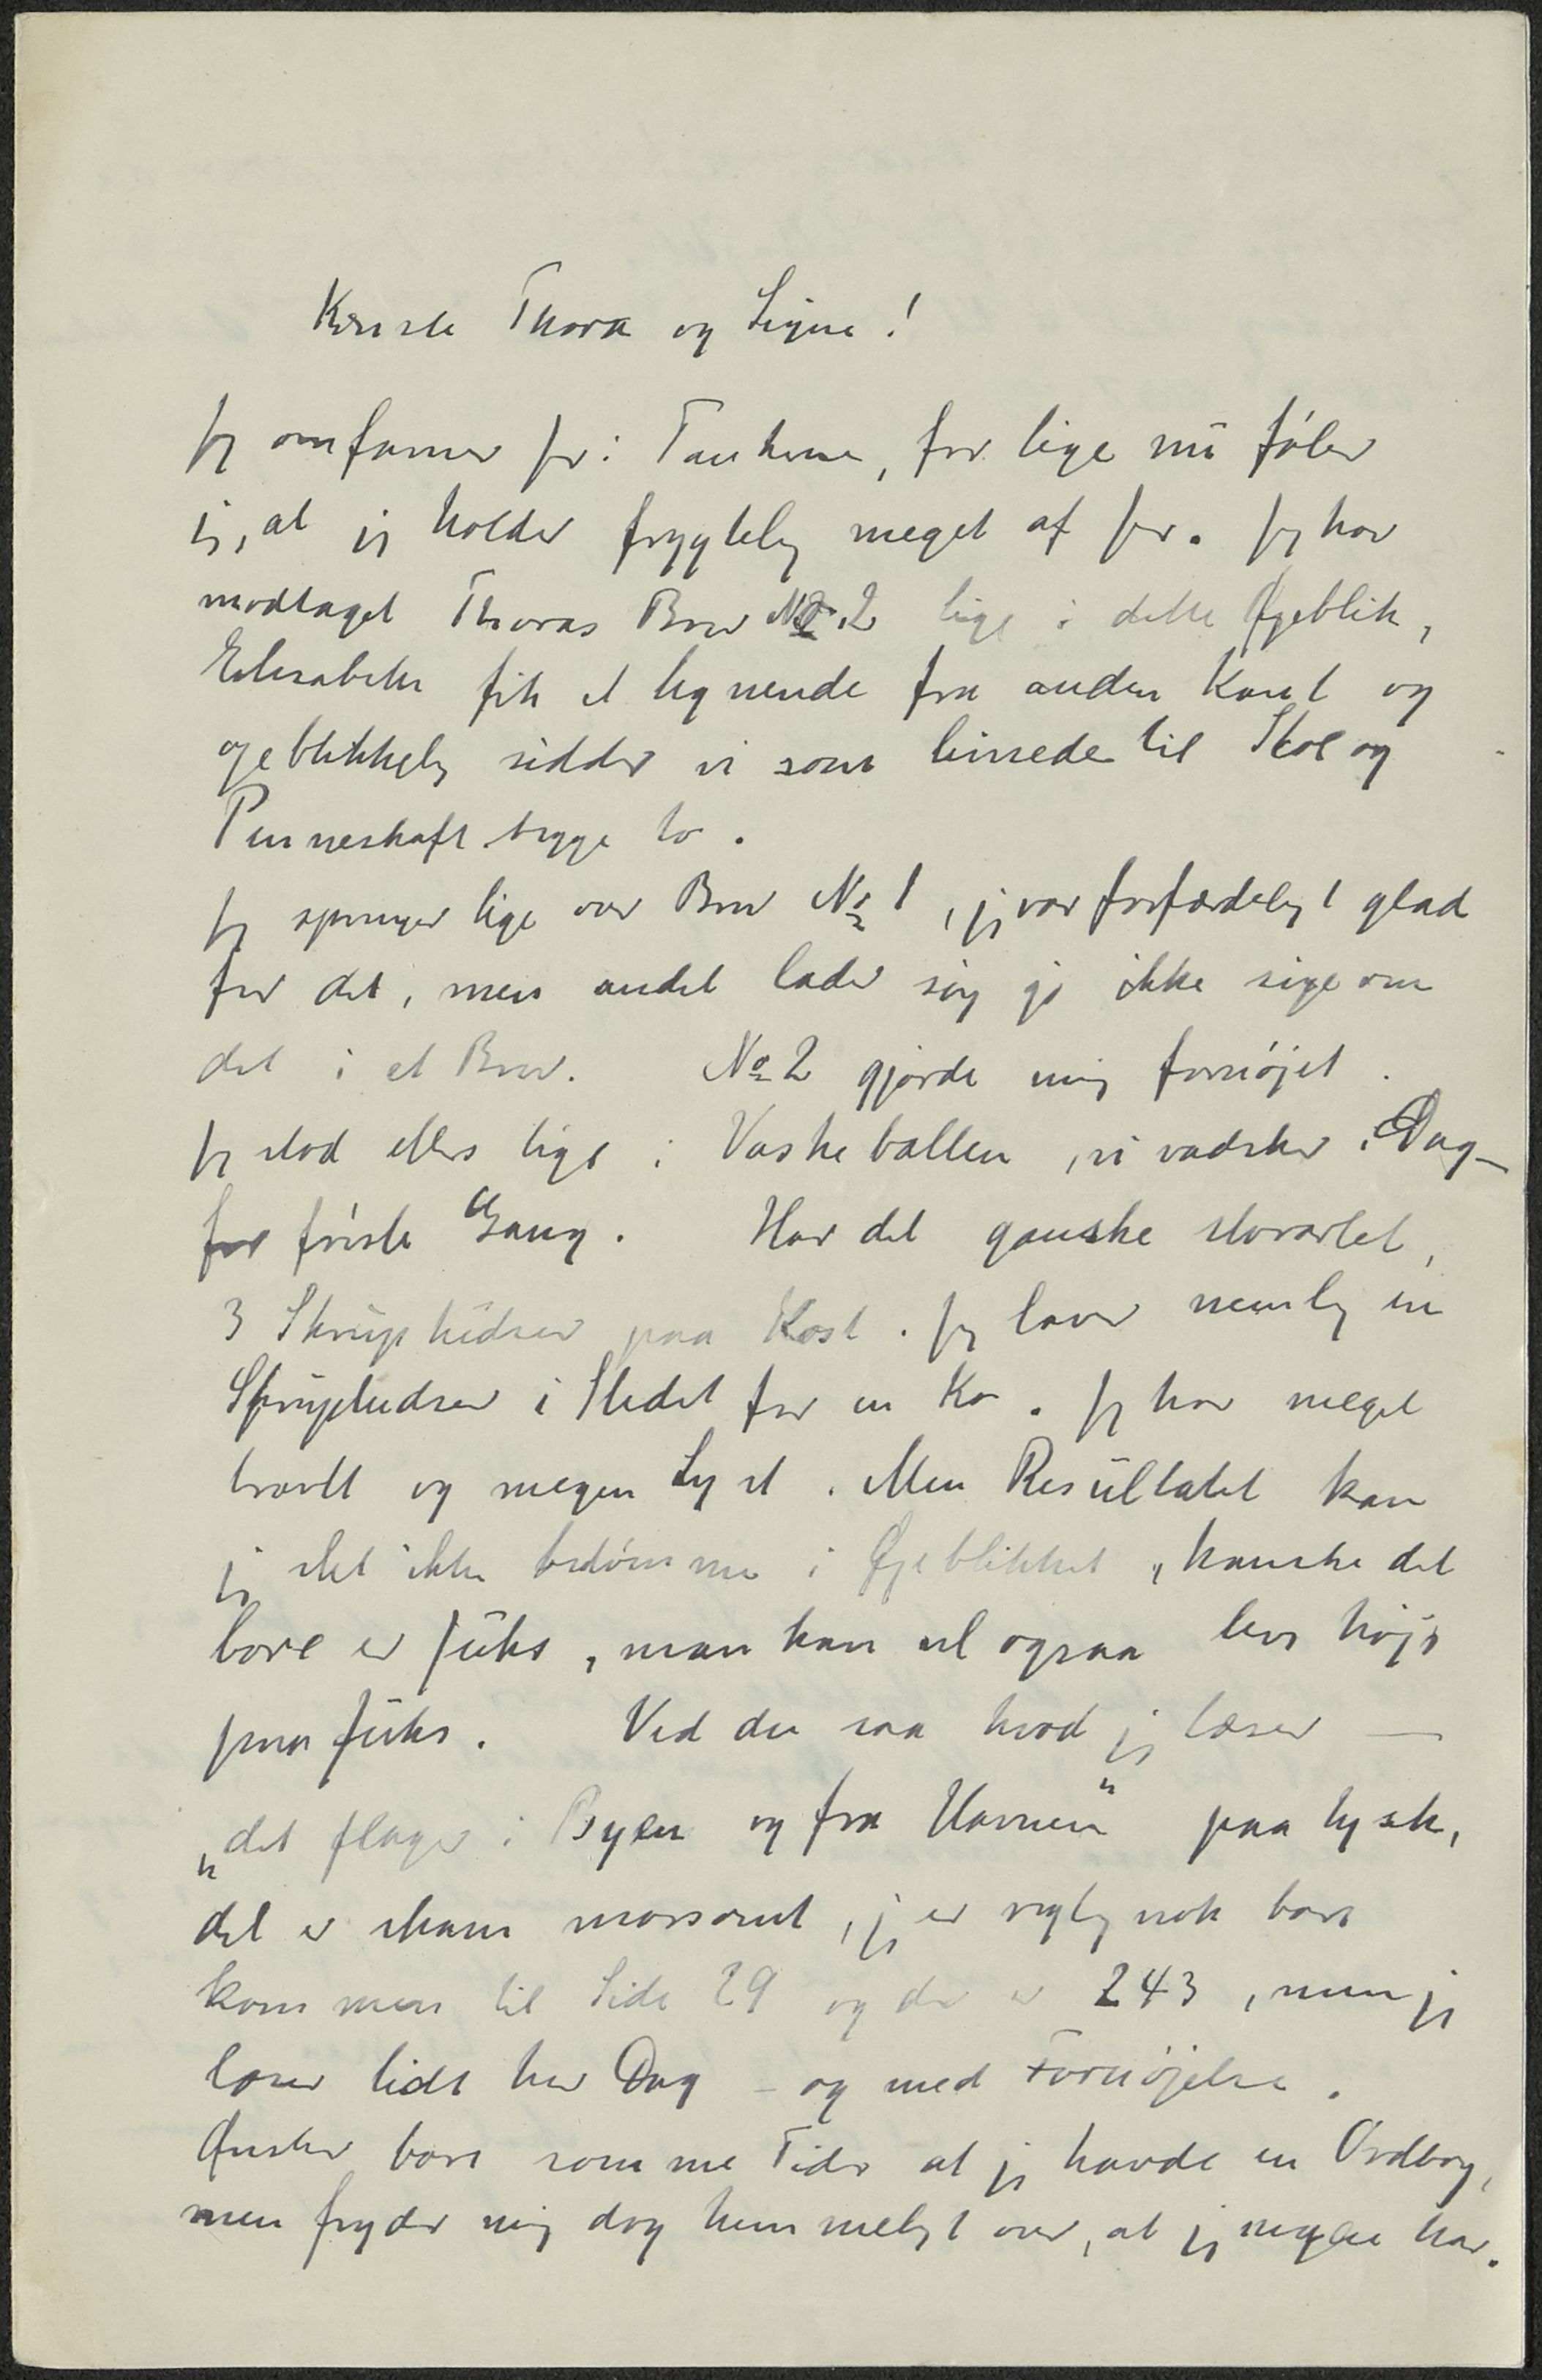 Kæreste Thora og Signe!
Jeg omfavner Jer i Tankerne, for lige nu føler
jeg, at jeg holder frygtelig meget af Jer. Jeg har
modtaget Thoras Brev № 2 lige i dette Øjeblik,
Elisabeth fik et lignende fra anden Kant og
øjeblikkelig sidder vi som limede til Stol og
Penneskaft begge to.
Jeg springer lige over Brev № 1, jeg var forfærdeligt glad
for det, men andet lader sig jo ikke sige om
det i et Brev. № 2 gjorde mig fornøjet.
Jeg stod ellers lige i Vaskeballen, vi vadsker i Dag
for første Gang. Har det ganske storartet,
3 Skruptudser paa Kost. Jeg laver nemlig en
Skruptudse i Stedet for en Ko. Jeg har meget
travlt og megen Lyst. Men Resultatet kan
jeg slet ikke bedømme i Øjeblikket, kanske det
bare er Juks, man kan vel ogsaa leve højt
paa Juks. Ved du saa hvad jeg læser —
„det flager i Byen og fra Havnen" paa tysk,
det er skam morsomt, jeg er rigtig nok bare
kommen til Side 29 og der er 243, men jeg
læser lidt hver Dag – og med Fornøjelse.
Ønsker bare somme Tider at jeg havde en Ordbog,
men fryder mig dog hemmeligt over, at jeg ingen har.